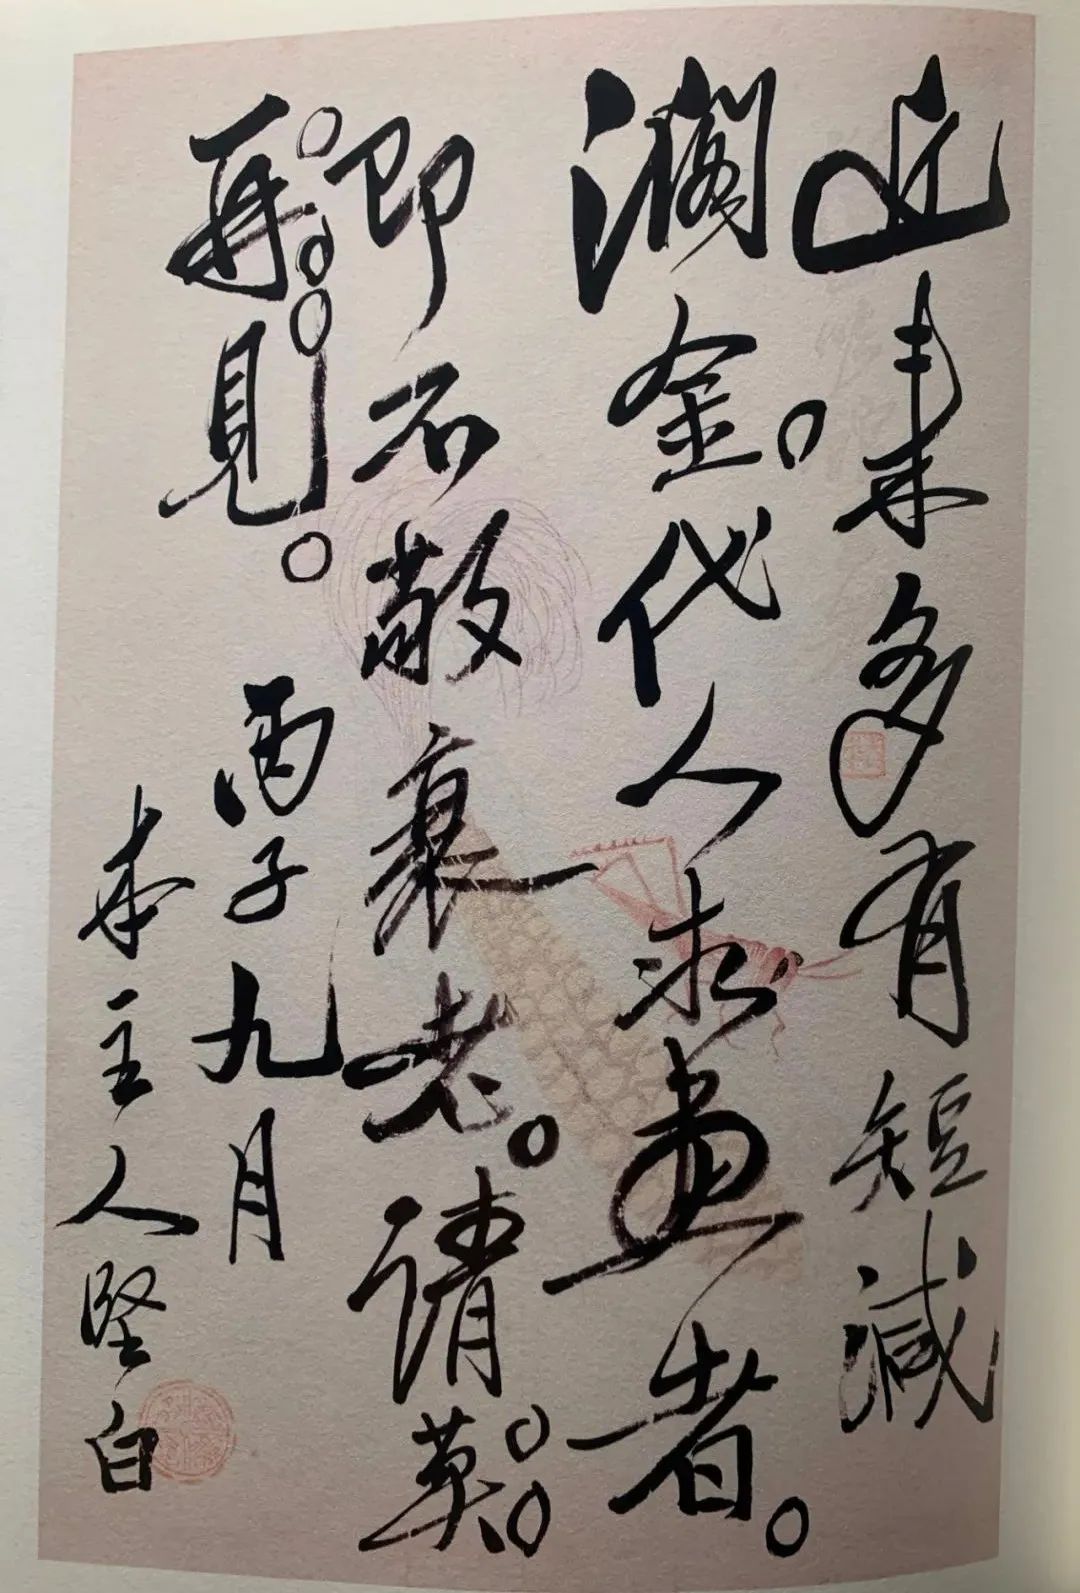 近來多有短減
潤金。代人求畫者。
即不敬衰老。請莫。。
再。。。見。
丙子九月
本主人堅白